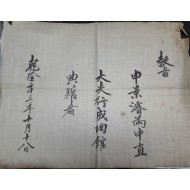 敎旨
申景濬爲中直
大夫行成均館
典籍者
乾隆十三年十月十八日